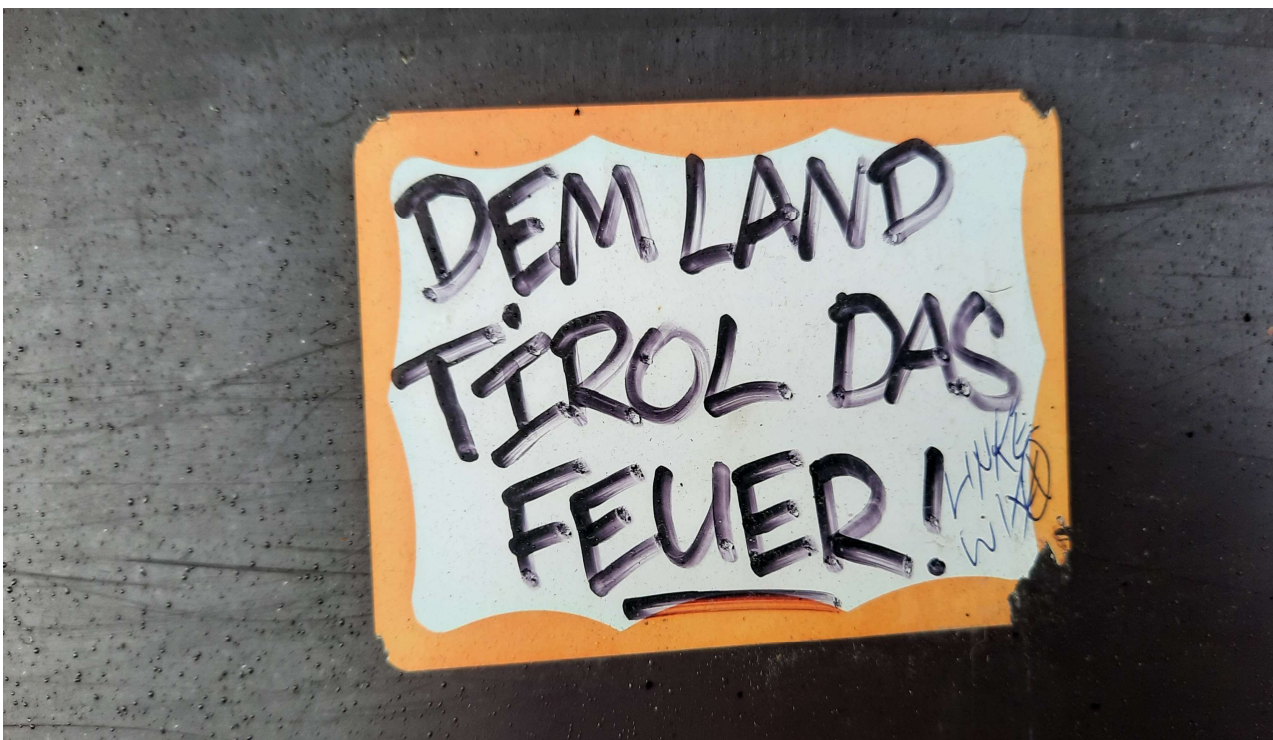 DEM LAND
TIROL DAS
FEUER!
LINKE